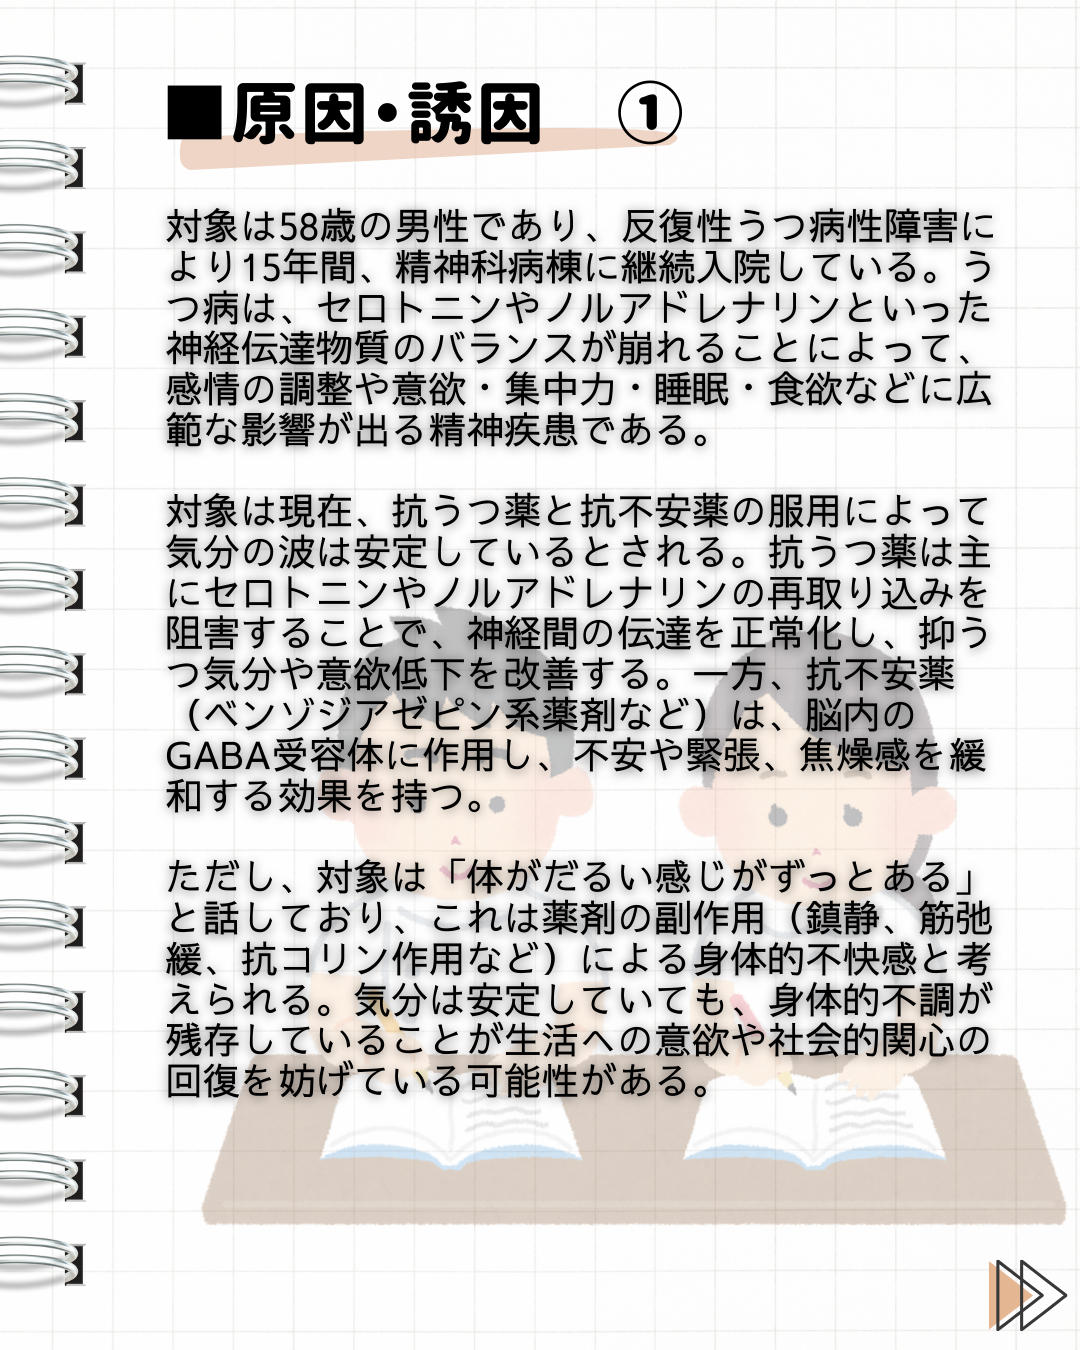 ■原因・誘因　①
対象は58歳の男性であり、反復性うつ病性障害に
より15年間、精神科病棟に継続入院している。う
つ病は、セロトニンやノルアドレナリンといった
神経伝達物質のバランスが崩れることによって、
感情の調整や意欲・集中力・睡眠・食欲などに広
範な影響が出る精神疾患である。
対象は現在、抗うつ薬と抗不安薬の服用によって
気分の波は安定しているとされる。抗うつ薬は主
にセロトニンやノルアドレナリンの再取り込みを
阻害することで、神経間の伝達を正常化し、抑う
つ気分や意欲低下を改善する。一方、抗不安薬
（ベンゾジアゼピン系薬剤など）は、脳内の
GABA受容体に作用し、不安や緊張、焦燥感を緩
和する効果を持つ。
ただし、対象は「体がだるい感じがずっとある」
と話しており、これは薬剤の副作用（鎮静、筋弛
緩、抗コリン作用など）による身体的不快感と考
えられる。気分は安定していても、身体的不調が
残存していることが生活への意欲や社会的関心の
回復を妨げている可能性がある。